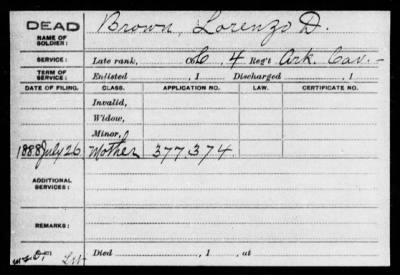 DEAD Brown, Lorenzo D.
NAME OF SOLDIER:
SERVICE: Late rank, Co. C, 4 Reg't Ark. Cav. -
TERM OF SERVICE: Enlisted , 1 Discharged , 1
DATE OF FILING. CLASS. APPLICATION NO. LAW. CERTIFICATE NO.
Invalid,
Widow,
Minor,
1888 July 26 Mother 377.374.
ADDITIONAL SERVICES:
REMARKS:
Died , 1 , at